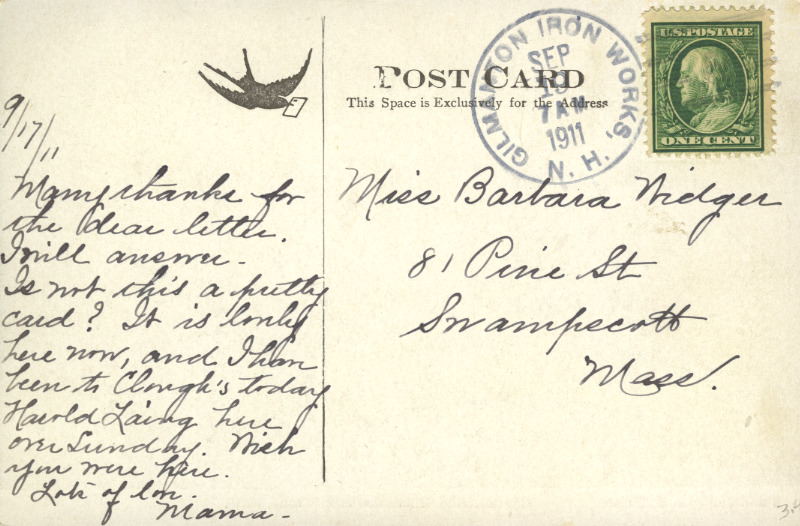 9/17/11
Many thanks for
the dear letter.
I will answer.
Is not this a pretty
card? It is lonely
here now, and I have
been to Clough's today
Harold Laing here
over Sunday. Wish
you were here.
Lots of love.
Mama-
POST CARD
This Space is Exclusively for the Address
GILMANTON IRON WORKS,
N. H.
SEP
7 AM
1911
U.S. POSTAGE
ONE CENT
Miss Barbara Widger
81 Pine St
Swampscott
Mass.